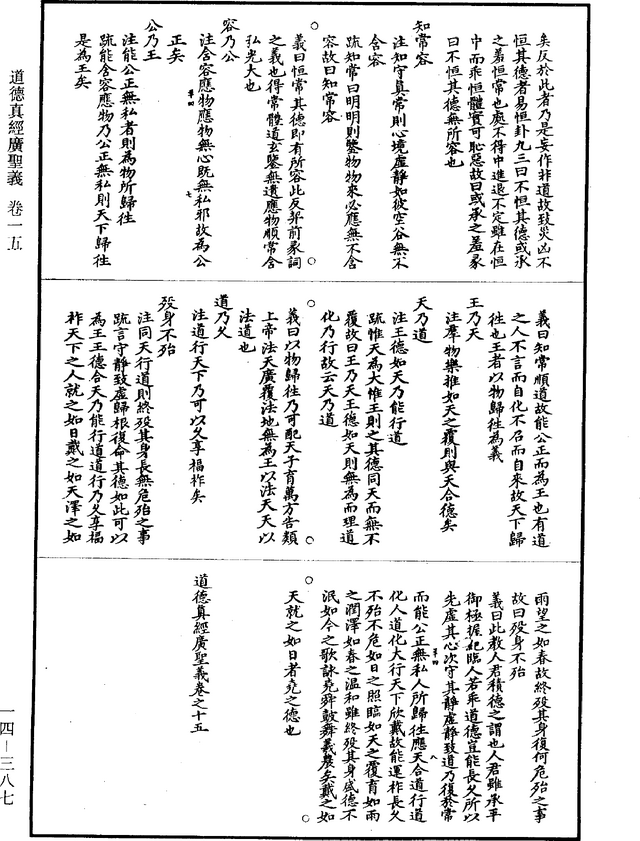 道德真經廣聖義 卷一五
矣反於此者乃是妄作非道故致災凶不
恒其德者易恒卦九三曰不恒其德或承
之羞恒常也處不得中進退不定雖在恒
中而乖恒體實可恥惡故曰或承之羞彖
曰不恒其德無所容也
知常容
注知守真常則心境虛靜如彼空谷無不
含容
疏知常曰明明則鑒物物來必應無不含
容故曰知常容
義曰恒常其德即有所容此反䇶前彖詞
之義也得常體道玄鑒無遺應物順常含
弘光大也
容乃公
注含容應物應物無心既無私邪故為公
正矣
公乃王
注能公正無私者則為物所歸往
疏能含容應物乃公正無私則天下歸往
是為王矣
義曰知常順道故能公正而為王也有道
之人不言而自化不召而自來故天下歸
往也王者以物歸往為義
王乃天
注羣物樂推如天之覆則與天合德矣
天乃道
注王德如天乃能行道
疏惟天為大惟王則之其德同天而無不
覆故曰王乃天王德如天則無為而理道
化乃行故云天乃道
義曰以物歸往乃可配天子育萬方告類
上帝法天廣覆法地無為王以法天天以
法道也
道乃久
注道行天下乃可以久享福祚矣
殁身不殆
注同天行道則終殁其身長無危殆之事
疏言守靜致虛歸根復命其德如此可以
為王王德合天乃能行道道行乃久享福
祚天下之人就之如日戴之如天澤之如
雨望之如春故終殁其身復何危殆之事
故曰殁身不殆
義曰此教人君積德之謂也人君雖承平
御極握紀臨人若乖道德豈能長久所以
先虛其心次守其靜虛靜致道乃復於常
而能公正無私人所歸往應天合道行道
化人道化大行天下欣戴故能運祚長久
不殆不危如日之照臨如天之覆育如雨
之潤澤如春之溫和雖終殁其身盛德不
泯如今之歌詠堯舜鼓舞羲農矣戴之如
天就之如日者堯之德也
道德真經廣聖義卷之十五
一四－三八七